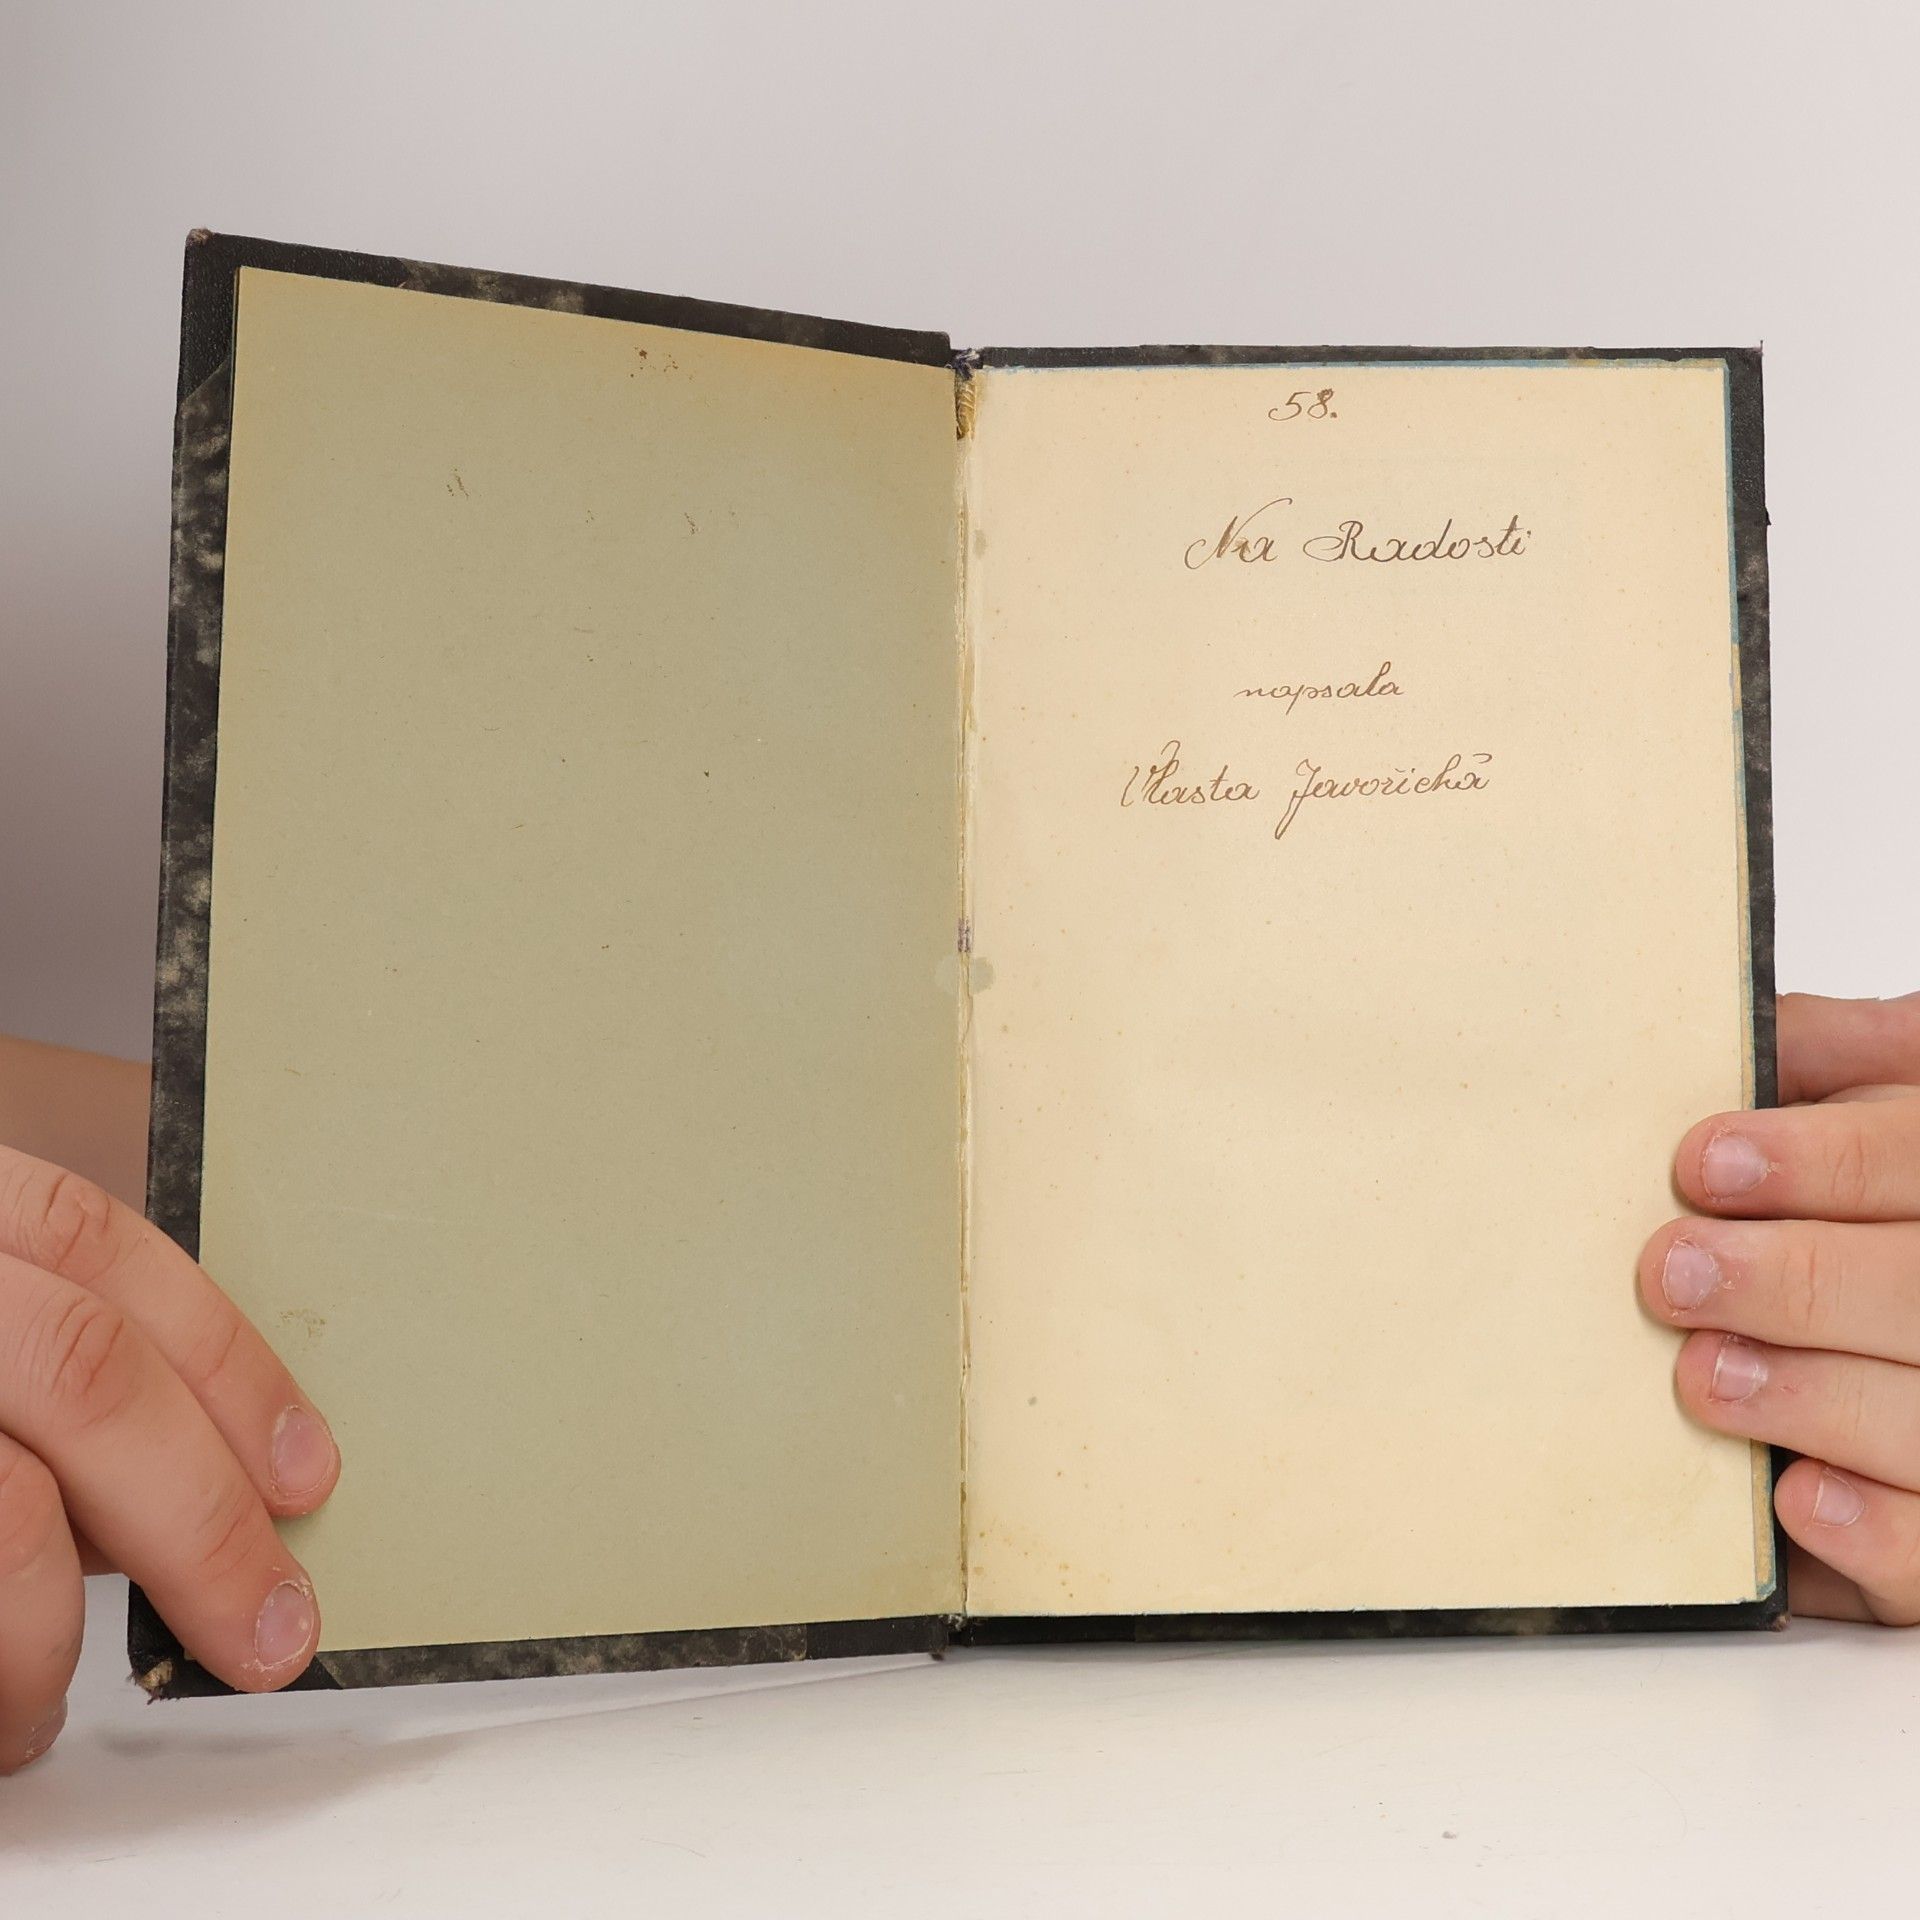 58.
Na Radosti
napsala
Vlasta Javořická